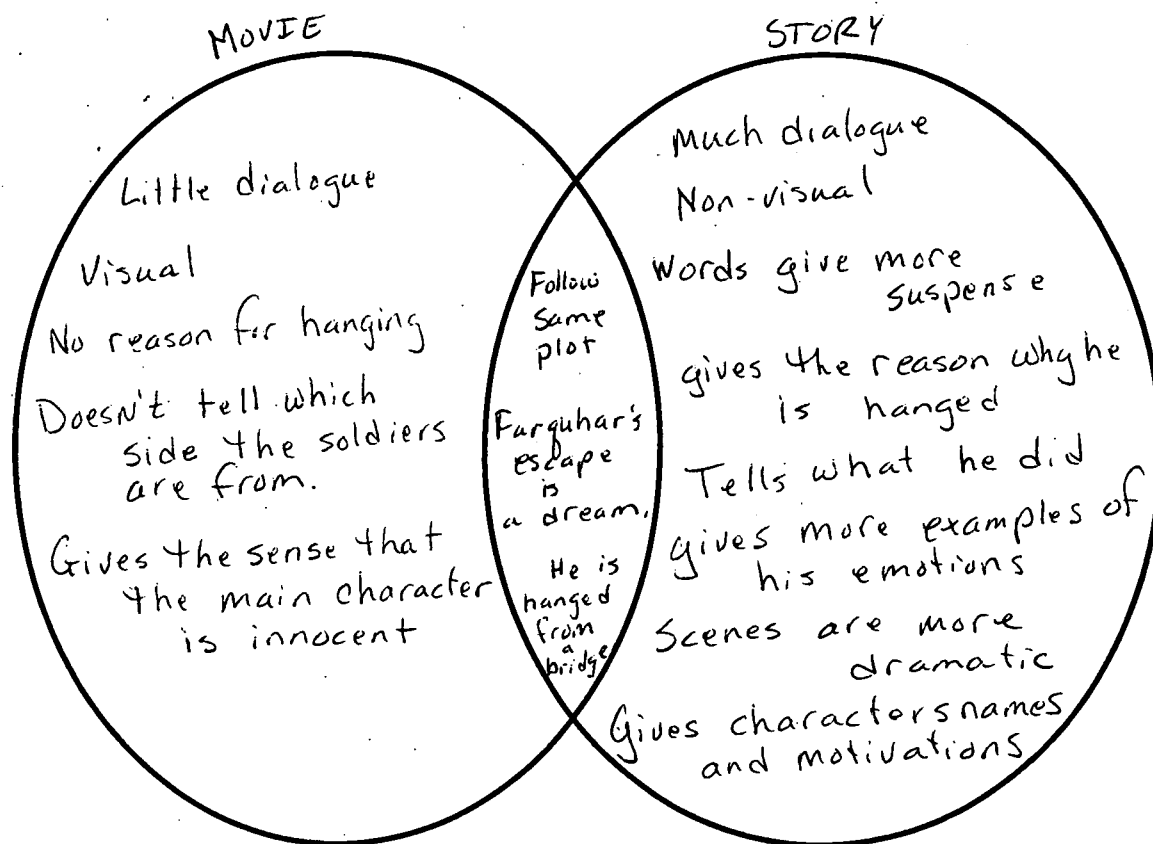 MOVIE
Little dialogue
Visual
No reason for hanging
Doesn't tell which
side the soldiers
are from.
Gives the sense that
the main character
is innocent
Follow
same
plot
Farquhar's
escape
is
a dream.
He is
hanged
from
a
bridge
STORY
Much dialogue
Non-visual
Words give more
suspense
gives the reason why he
is hanged
Tells what he did
gives more examples of
his emotions
Scenes are more
dramatic
Gives charactors names
and motivations